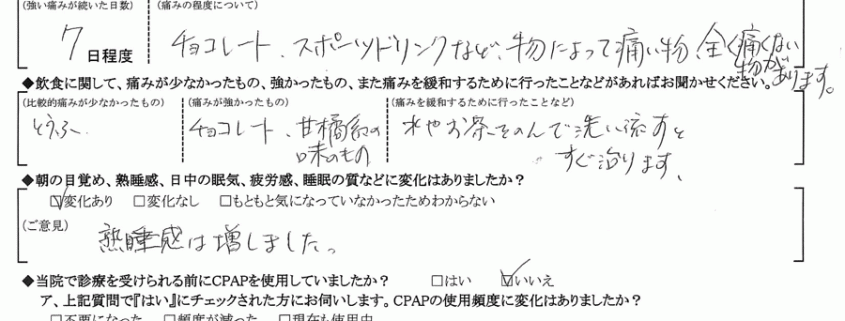 (強い痛みが続いた日数) (痛みの程度について)
7日程度 チョコレート、スポーツドリンクなど、物によって痛い物、全く痛くない物があります。
◆飲食に関して、痛みが少なかったもの、強かったもの、また痛みを緩和するために行ったことなどがあればお聞かせください。
(比較的痛みが少なかったもの) (痛みが強かったもの) (痛みを緩和するために行ったことなど)
とうふ チョコレート、甘橘系の 水やお茶をのんで洗い流すと
味のもの すぐ治ります、
◆朝の目覚め、熟睡感、日中の眠気、疲労感、睡眠の質などに変化はありましたか?
☑変化あり □変化なし □もともと気になっていなかったためわからない
(ご意見)
熟睡感は増しました。
◆当院で診療を受けられる前にCPAPを使用していましたか? □はい ☑いいえ
ア、上記質問で『はい』にチェックされた方にお伺いします。CPAPの使用頻度に変化はありましたか?
□不要になった □頻度が減った □現在も使用中